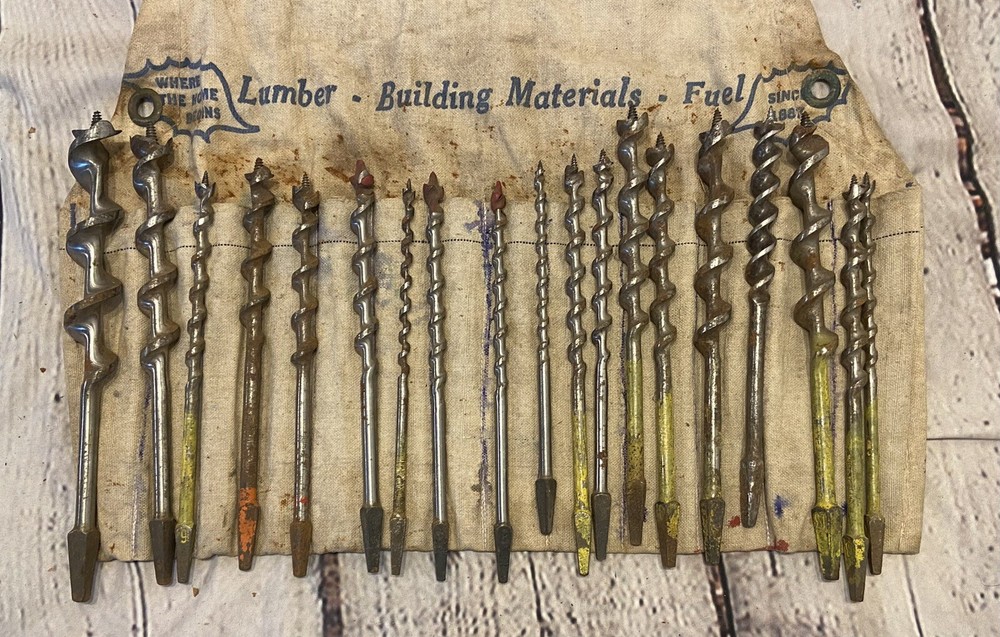 WHERE
THE HOME
BEGINS
Lumber - Building Materials - Fuel
SINCE